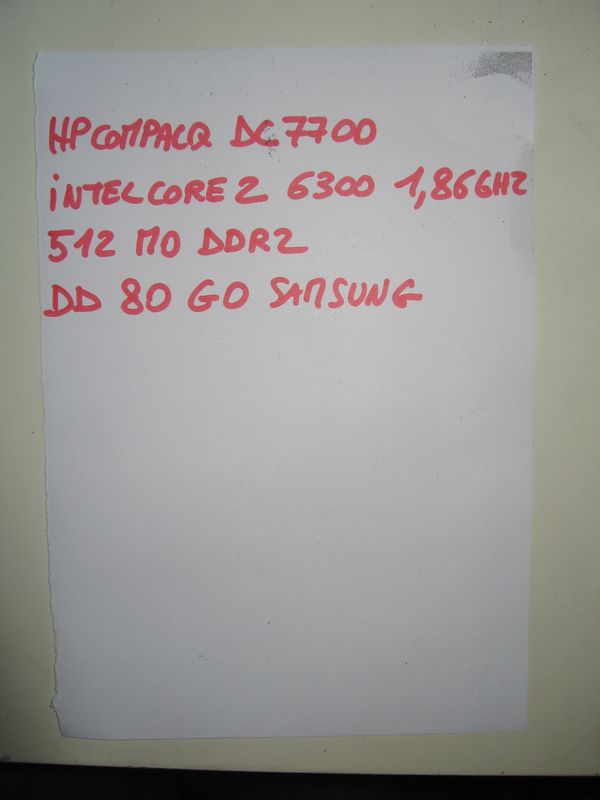 HP COMPACQ DC7700
iNTEL CORE 2 6300 1,86GHZ
512 MO DDR2
DD 80 GO SAMSUNG